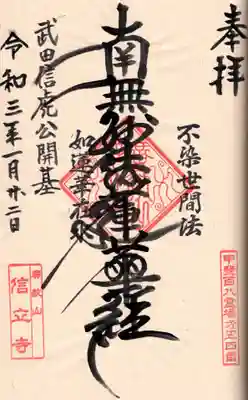 奉拝
不染世間法
南無妙法蓮華経
如蓮華在水
武田信虎公開基
令和三年一月廿二日
甲斐百八霊場方五四番
信立寺